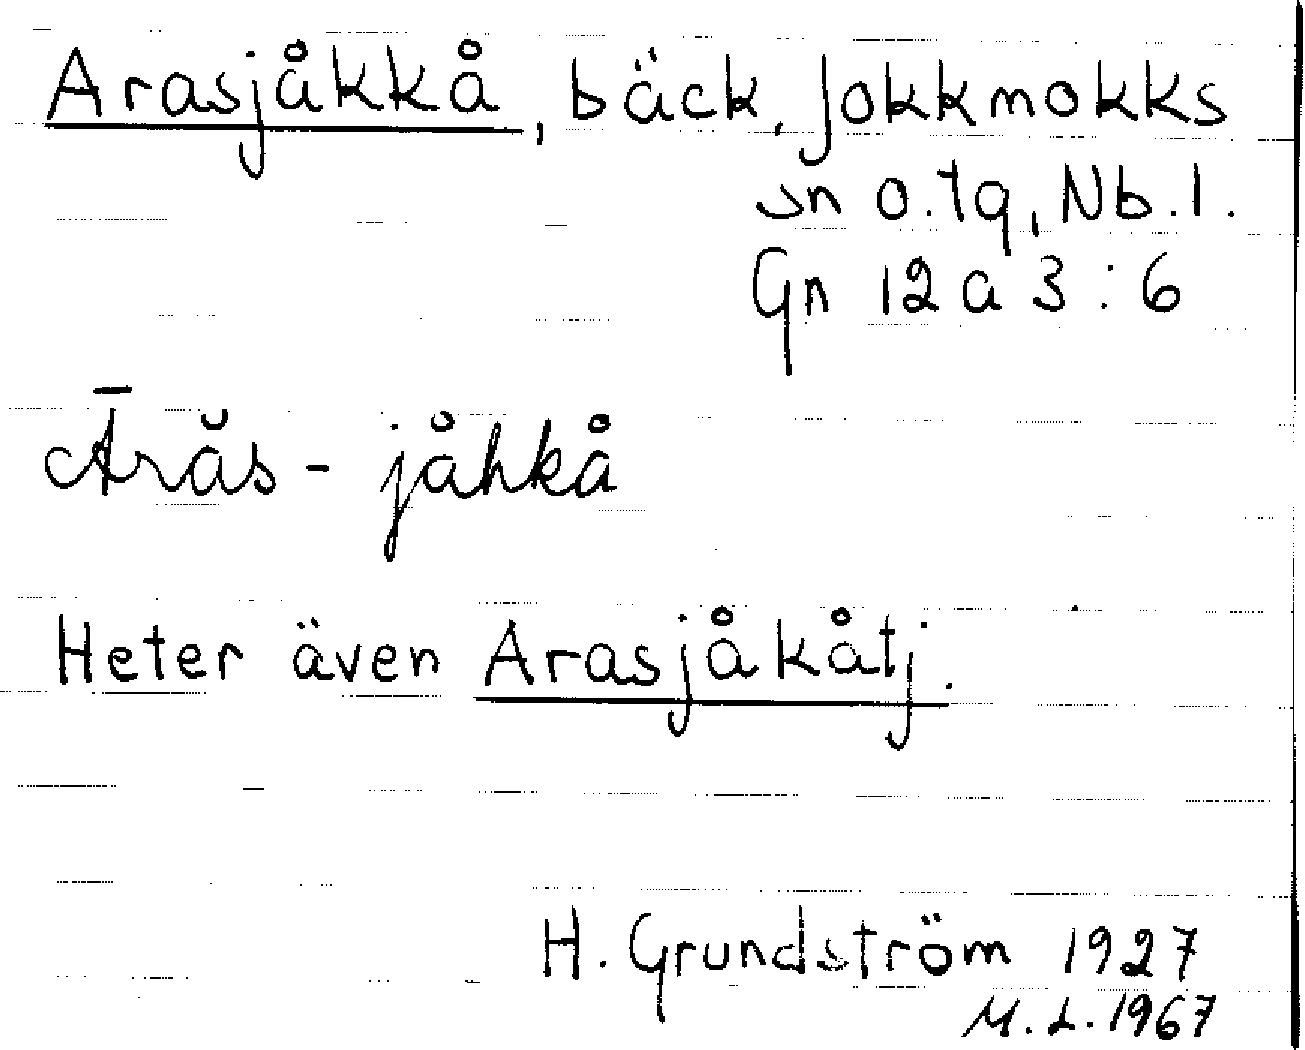 Arasjåkkå, bäck, Jokkmokks
sn o. tg, Nb. l.
Gn 12 a 3 : 6
Ārăs - jåhkå
Heter även Arasjåkåtj.
H. Grundström 1927
M. L. 1967